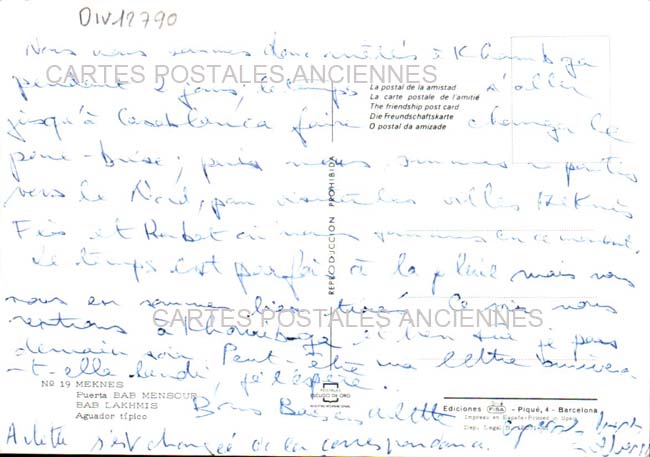 DIV12790
Nous nous sommes donc arrêtés à Khouribga
pendant 2 jours, le temps d'aller
CARTES POSTALES ANCIENNES
jusqu'à Casablanca faire changer le
pare-brise; puis nous sommes repartis
vers le Nord, pour visiter les villes Meknès
Fès et Rabat où nous sommes en ce moment.
Le temps est parfois à la pluie mais nous
nous en sommes bien tiré. Ce soir nous
rentrons à Khouribga et
CARTES POSTALES ANCIENNES
demain soir. Peut-être ma lettre arrivera
-t-elle lundi, je l'espère.
Bons Baisers Arlette
Arlette s'est chargée de la correspondance.
La postal de la amistad
La carte postale de l'amitié
The friendship post card
Die Freundschaftskarte
O postal da amizade
REPRODUCCION PROHIBIDA
Nº 19 MEKNES
Puerta BAB MENSOUR
BAB LAKHMIS
Aguador típico
POSTALES
ESCUDO DE ORO
Ediciones FISA - Piqué, 4 - Barcelona
Impreso en España-Printed in Spain
Dep. Legal B.